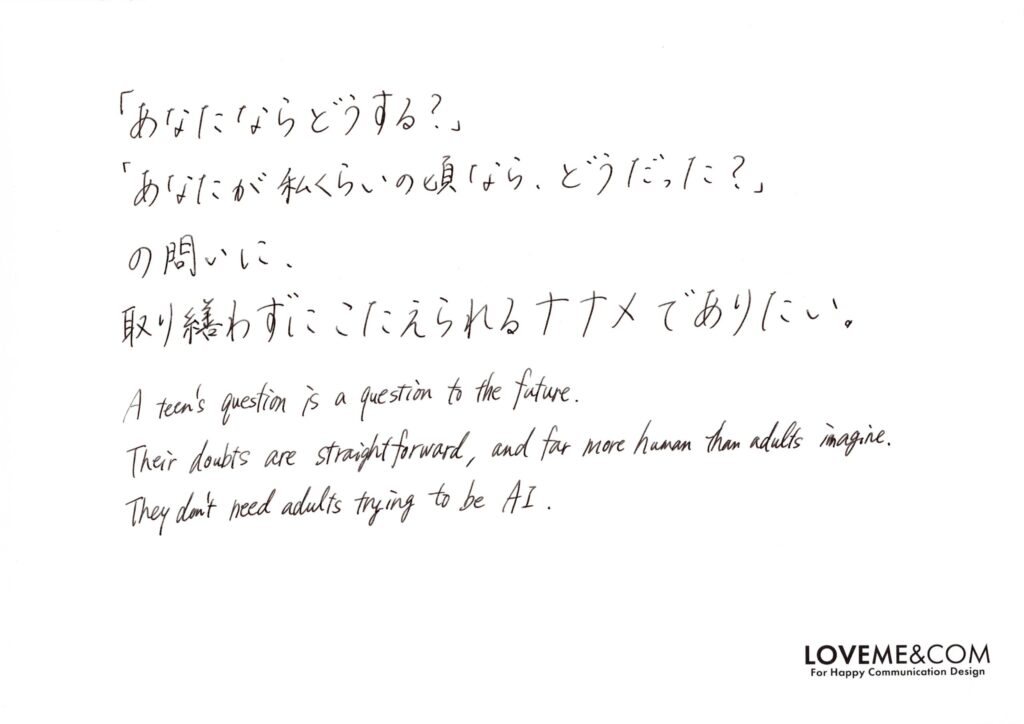 「あなたならどうする？」
「あなたが私くらいの頃なら、どうだった？」
の問いに、
取り繕わずにこたえられるナナメでありたい。
A teen's question is a question to the future.
Their doubts are straightforward, and far more human than adults imagine.
They don't need adults trying to be AI.
LOVEME&COM
For Happy Communication Design